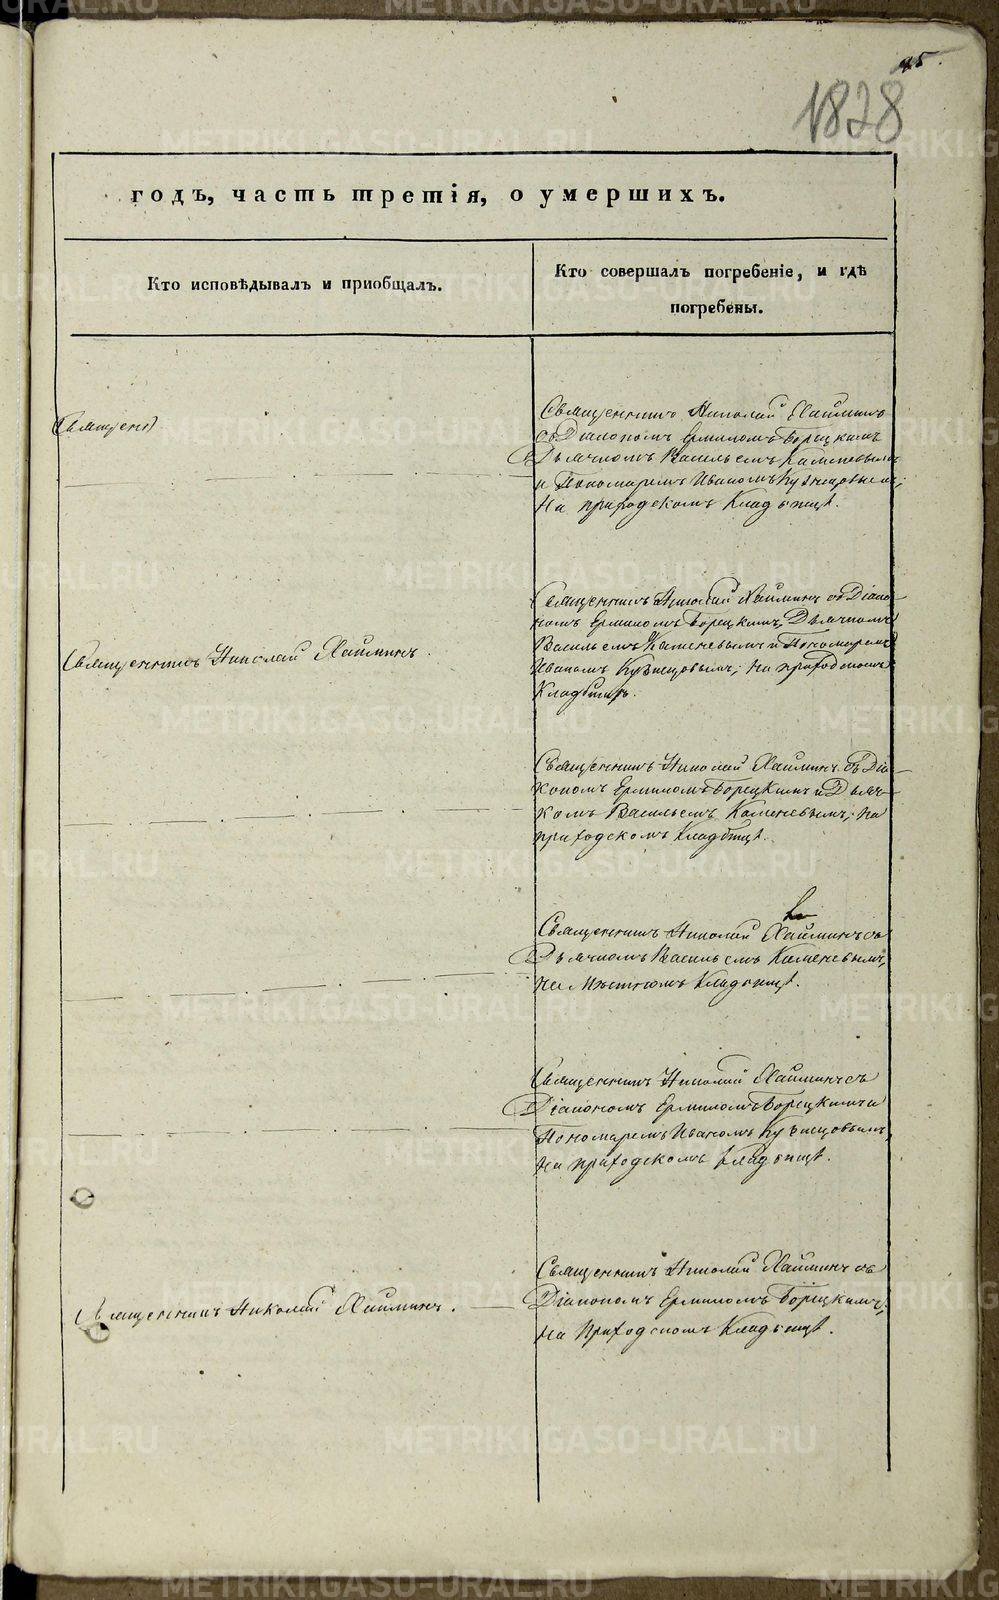 95.
1828
годъ, часть третія, о умершихъ.
Кто исповѣдывалъ и приобщалъ.
Кто совершалъ погребеніе, и гдѣ
погребены.
Священ
Священникъ Николай Хайминъ
съ Діакономъ Ермиломъ Борецкимъ
Дьячкомъ Васильемъ Каменевымъ
и Пономаремъ Иваномъ Кузнецовымъ;
На приходскомъ Кладбищѣ.
Священникъ Николай Хайминъ.
Священникъ Николай Хайминъ съ Діако
номъ Ермиломъ Борецкимъ, Дьячкомъ
Васильемъ Каменевымъ и Пономаремъ
Иваномъ Кузнецовымъ; на приходскомъ
Кладбищѣ.
Священникъ Николай Хайминъ съ Діа
кономъ Ермиломъ Борецкимъ и Дьяч
комъ Васильемъ Каменевымъ; на
приходскомъ Кладбищѣ.
Священникъ Николай Хайминъ съ
Дьячкомъ Васильемъ Каменевымъ,
на мѣстномъ Кладбищѣ.
Священникъ Николай Хайминъ съ
Діакономъ Ермиломъ Борецкимъ и
Пономаремъ Иваномъ Кузнецовымъ,
на приходскомъ Кладбищѣ.
Священникъ Николай Хайминъ.
Священникъ Николай Хайминъ съ
Діакономъ Ермиломъ Борецкимъ;
на Приходскомъ Кладбищѣ.
METRIKI.GASO-URAL.RU